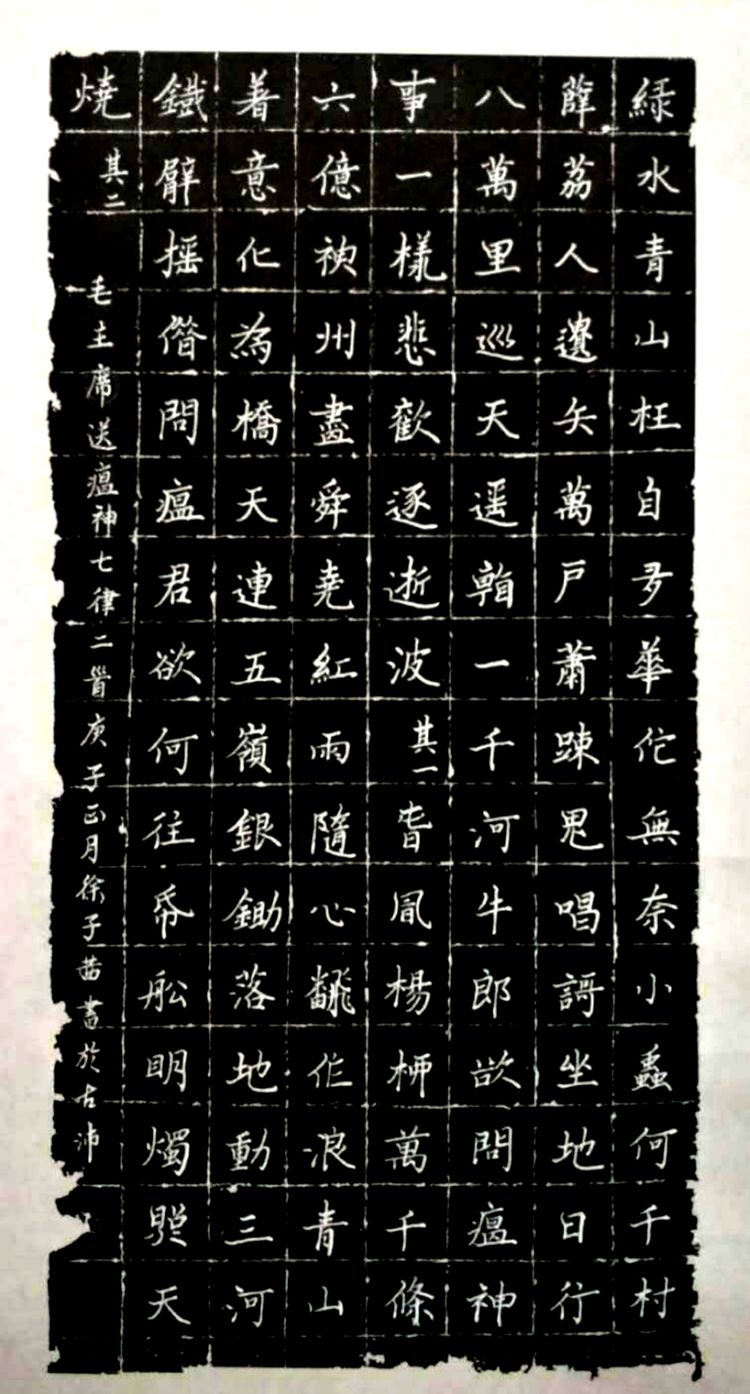 綠水青山枉自多華佗無奈小蟲何千村
薜荔人遺矢萬戶蕭疎鬼唱謌坐地日行
八萬里巡天遙看一千河牛郎欲問瘟神
事一樣悲歡逐逝波其一春風楊柳萬千條
六億神州盡舜堯紅雨隨心翻作浪青山
著意化為橋天連五嶺銀鋤落地動三河
鐵臂搖借問瘟君欲何往帋船明燭照天
燒其二毛主席送瘟神七律二首庚子正月徐子茜書於古沛